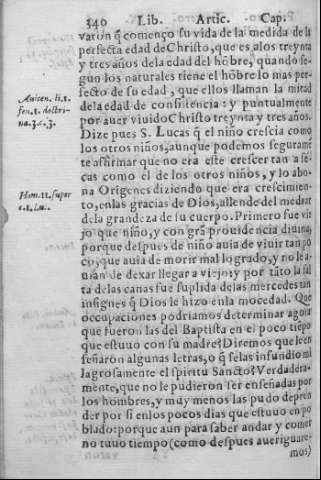 340 Lib. Artic. Cap.
varon q̃ començo su vida de la medida de la
perfecta edad de Christo, que es a los treynta
y tres años de la edad del hõbre, quando se-
gun los naturales tiene el hõbre lo mas per-
fecto de su edad, que ellos llaman la mitad
de la edad de consistencia: y puntualmente
por auer viuido Christo treynta y tres años.
Dize pues S. Lucas q̃ el niño crescia como
los otros niños, aunque podemos segurame
te affirmar que no era este crescer tan a se-
cas como el de los otros niños, y lo abo-
na Origenes diziendo que era crescimien-
to, en las gracias de Dios, allende del medrar
de la grandeza de su cuerpo. Primero fue vie
jo que niño, y con grã prouidencia diuina,
porque despues de niño auia de viuir tan po
co, que auia de morir mal logrado, y no le a-
uian de dexar llegar a viejo: y por tãto la fal
ta de las canas fue suplida de las mercedes tan
insignes q̃ Dios le hizo en la mocedad. Que
occupaciones podriamos determinar agora
que fueron las del Baptista en el poco tiepo
que estuuo con su madre? Diremos que le en
señaron algunas letras, o q̃ se las infundio mi
lagrosamente el spiritu Sancto? Verdadera-
mente, que no le pudieron ser enseñadas por
los hombres, y muy menos las pudo depren
der por si en los pocos dias que estuuo en po
blado: porque aun para saber andar y comer
no tuuo tiempo (como despues aueriguare-
mos)
Auicen. li. 1.
fen. 1. doctri-
na. 3. c. 3.
Hom. 11. super
c. 1. Lu.